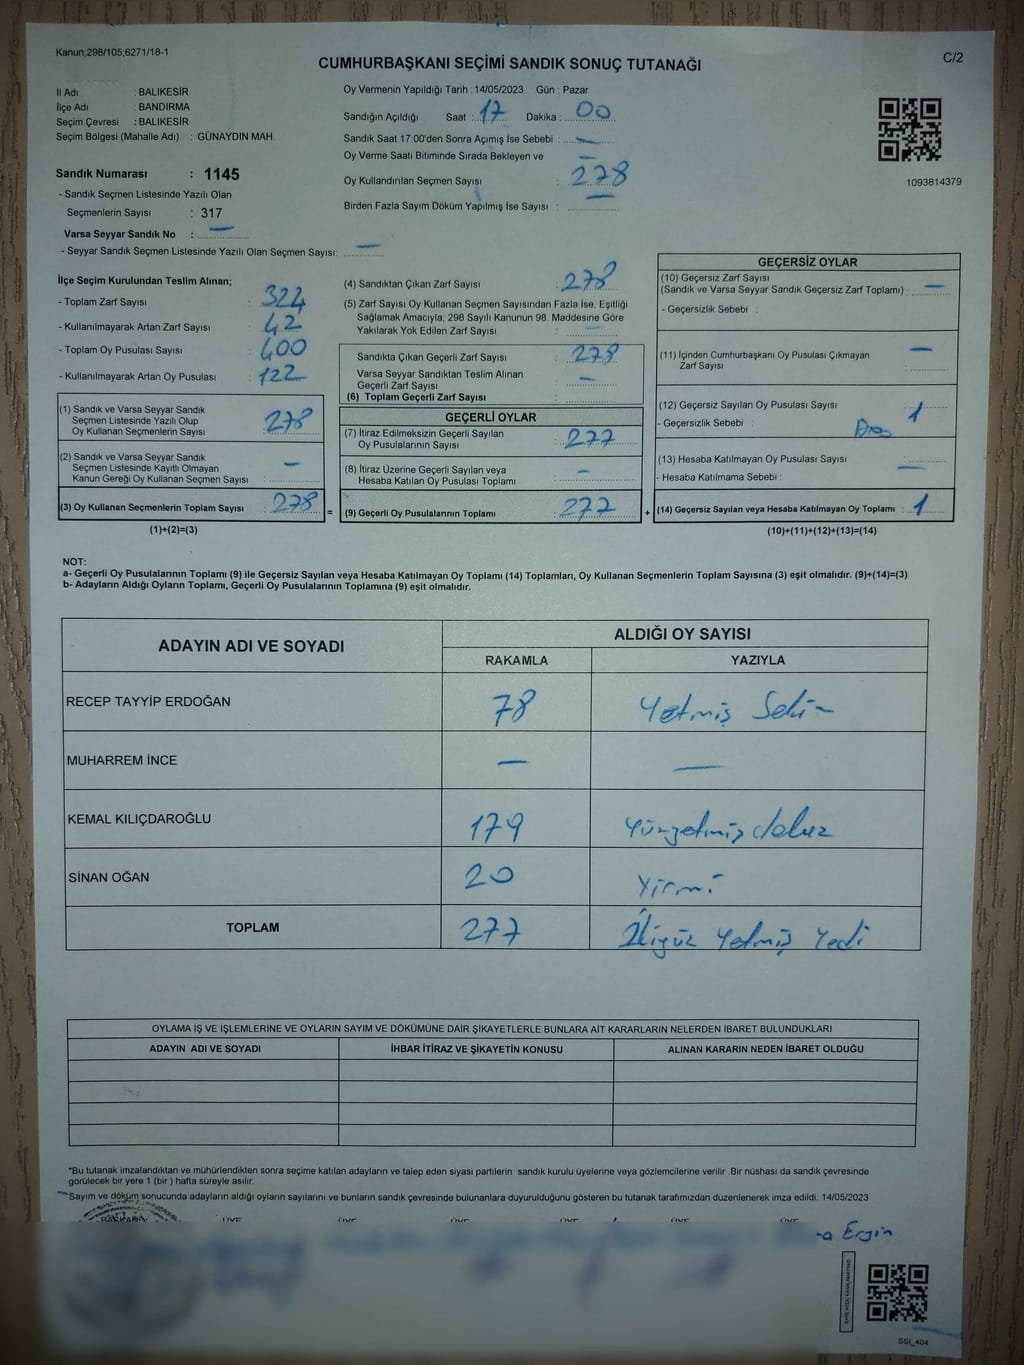 Kanun;298/105;6271/18-1
C/2
CUMHURBAŞKANI SEÇİMİ SANDIK SONUÇ TUTANAĞI
İl Adı : BALIKESİR
İlçe Adı : BANDIRMA
Seçim Çevresi : BALIKESİR
Seçim Bölgesi (Mahalle Adı) : GÜNAYDIN MAH.
Oy Vermenin Yapıldığı Tarih : 14/05/2023 Gün : Pazar
Sandığın Açıldığı Saat : 17 Dakika : 00
Sandık Saat 17:00'den Sonra Açımış İse Sebebi : —
Oy Verme Saati Bitiminde Sırada Bekleyen ve —
Oy Kullandırılan Seçmen Sayısı : 278
Birden Fazla Sayım Döküm Yapılmış İse Sayısı : —
1093814379
Sandık Numarası : 1145
- Sandık Seçmen Listesinde Yazılı Olan
Seçmenlerin Sayısı : 317
Varsa Seyyar Sandık No : —
- Seyyar Sandık Seçmen Listesinde Yazılı Olan Seçmen Sayısı: —
İlçe Seçim Kurulundan Teslim Alınan;
- Toplam Zarf Sayısı : 324
- Kullanılmayarak Artan Zarf Sayısı : 42
- Toplam Oy Pusulası Sayısı : 400
- Kullanılmayarak Artan Oy Pusulası : 122
(1) Sandık ve Varsa Seyyar Sandık
Seçmen Listesinde Yazılı Olup
Oy Kullanan Seçmenlerin Sayısı : 278
(2) Sandık ve Varsa Seyyar Sandık
Seçmen Listesinde Kayıtlı Olmayan
Kanun Gereği Oy Kullanan Seçmen Sayısı : —
(3) Oy Kullanan Seçmenlerin Toplam Sayısı : 278 =
(1)+(2)=(3)
(4) Sandıktan Çıkan Zarf Sayısı : 278
(5) Zarf Sayısı Oy Kullanan Seçmen Sayısından Fazla İse, Eşitliği
Sağlamak Amacıyla; 298 Sayılı Kanunun 98. Maddesine Göre
Yakılarak Yok Edilen Zarf Sayısı : —
Sandıkta Çıkan Geçerli Zarf Sayısı : 278
Varsa Seyyar Sandıktan Teslim Alınan
Geçerli Zarf Sayısı : —
(6) Toplam Geçerli Zarf Sayısı :
GEÇERLİ OYLAR
(7) İtiraz Edilmeksizin Geçerli Sayılan
Oy Pusulalarının Sayısı : 277
(8) İtiraz Üzerine Geçerli Sayılan veya
Hesaba Katılan Oy Pusulası Toplamı : —
(9) Geçerli Oy Pusulalarının Toplamı : 277 +
GEÇERSİZ OYLAR
(10) Geçersiz Zarf Sayısı
(Sandık ve Varsa Seyyar Sandık Geçersiz Zarf Toplamı) : —
- Geçersizlik Sebebi :
(11) İçinden Cumhurbaşkanı Oy Pusulası Çıkmayan —
Zarf Sayısı :
(12) Geçersiz Sayılan Oy Pusulası Sayısı : 1
- Geçersizlik Sebebi :
(13) Hesaba Katılmayan Oy Pusulası Sayısı : —
- Hesaba Katılmama Sebebi :
(14) Geçersiz Sayılan veya Hesaba Katılmayan Oy Toplamı : 1
(10)+(11)+(12)+(13)=(14)
NOT:
a- Geçerli Oy Pusulalarının Toplamı (9) ile Geçersiz Sayılan veya Hesaba Katılmayan Oy Toplamı (14) Toplamları, Oy Kullanan Seçmenlerin Toplam Sayısına (3) eşit olmalıdır. (9)+(14)=(3)
b- Adayların Aldığı Oyların Toplamı, Geçerli Oy Pusulalarının Toplamına (9) eşit olmalıdır.
ADAYIN ADI VE SOYADI ALDIĞI OY SAYISI
RAKAMLA YAZIYLA
RECEP TAYYİP ERDOĞAN 78 Yetmiş Sekiz
MUHARREM İNCE — —
KEMAL KILIÇDAROĞLU 179 Yüzyetmiş dokuz
SİNAN OĞAN 20 Yirmi
TOPLAM 277 İkiyüz Yetmiş Yedi
OYLAMA İŞ VE İŞLEMLERİNE VE OYLARIN SAYIM VE DÖKÜMÜNE DAİR ŞİKAYETLERLE BUNLARA AİT KARARLARIN NELERDEN İBARET BULUNDUKLARI
ADAYIN ADI VE SOYADI İHBAR İTİRAZ VE ŞİKAYETİN KONUSU ALINAN KARARIN NEDEN İBARET OLDUĞU
*Bu tutanak imzalandıktan ve mühürlendikten sonra seçime katılan adayların ve talep eden siyasi partilerin sandık kurulu üyelerine veya gözlemcilerine verilir .Bir nüshası da sandık çevresinde
görülecek bir yere 1 (bir ) hafta süreyle asılır.
Sayım ve döküm sonucunda adayların aldığı oyların sayılarını ve bunların sandık çevresinde bulunanlara duyurulduğunu gösteren bu tutanak tarafımızdan düzenlenerek imza edildi. 14/05/2023
BAŞKAN ÜYE ÜYE ÜYE ÜYE ÜYE ÜYE
Ergin